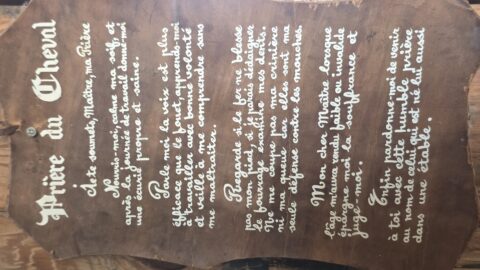 Prière du Cheval
Je te soumets, Maître, ma Prière
Nourris-moi, calme ma soif, et
après la journée de travail donne-moi
une écurie propre et saine.
Parle moi la voix est plus
efficace que le fouet, apprends-moi
à travailler avec bonne volonté
et veille à me comprendre sans
me maltraiter.
Regarde si le fer ne blesse
pas mon pied, si jamais dédaigner
le fourrage examine mes dents.
Ne me coupe pas ma crinière
ni ma queue car elles sont ma
seule défense contre les mouches.
Mon cher Maître lorsque
l'âge m'aura rendu faible ou invalide
épargne moi la souffrance et
juge-moi.
Enfin pardonne-moi de venir
à toi avec cette humble prière
au nom de celui qui est né lui aussi
dans une étable.